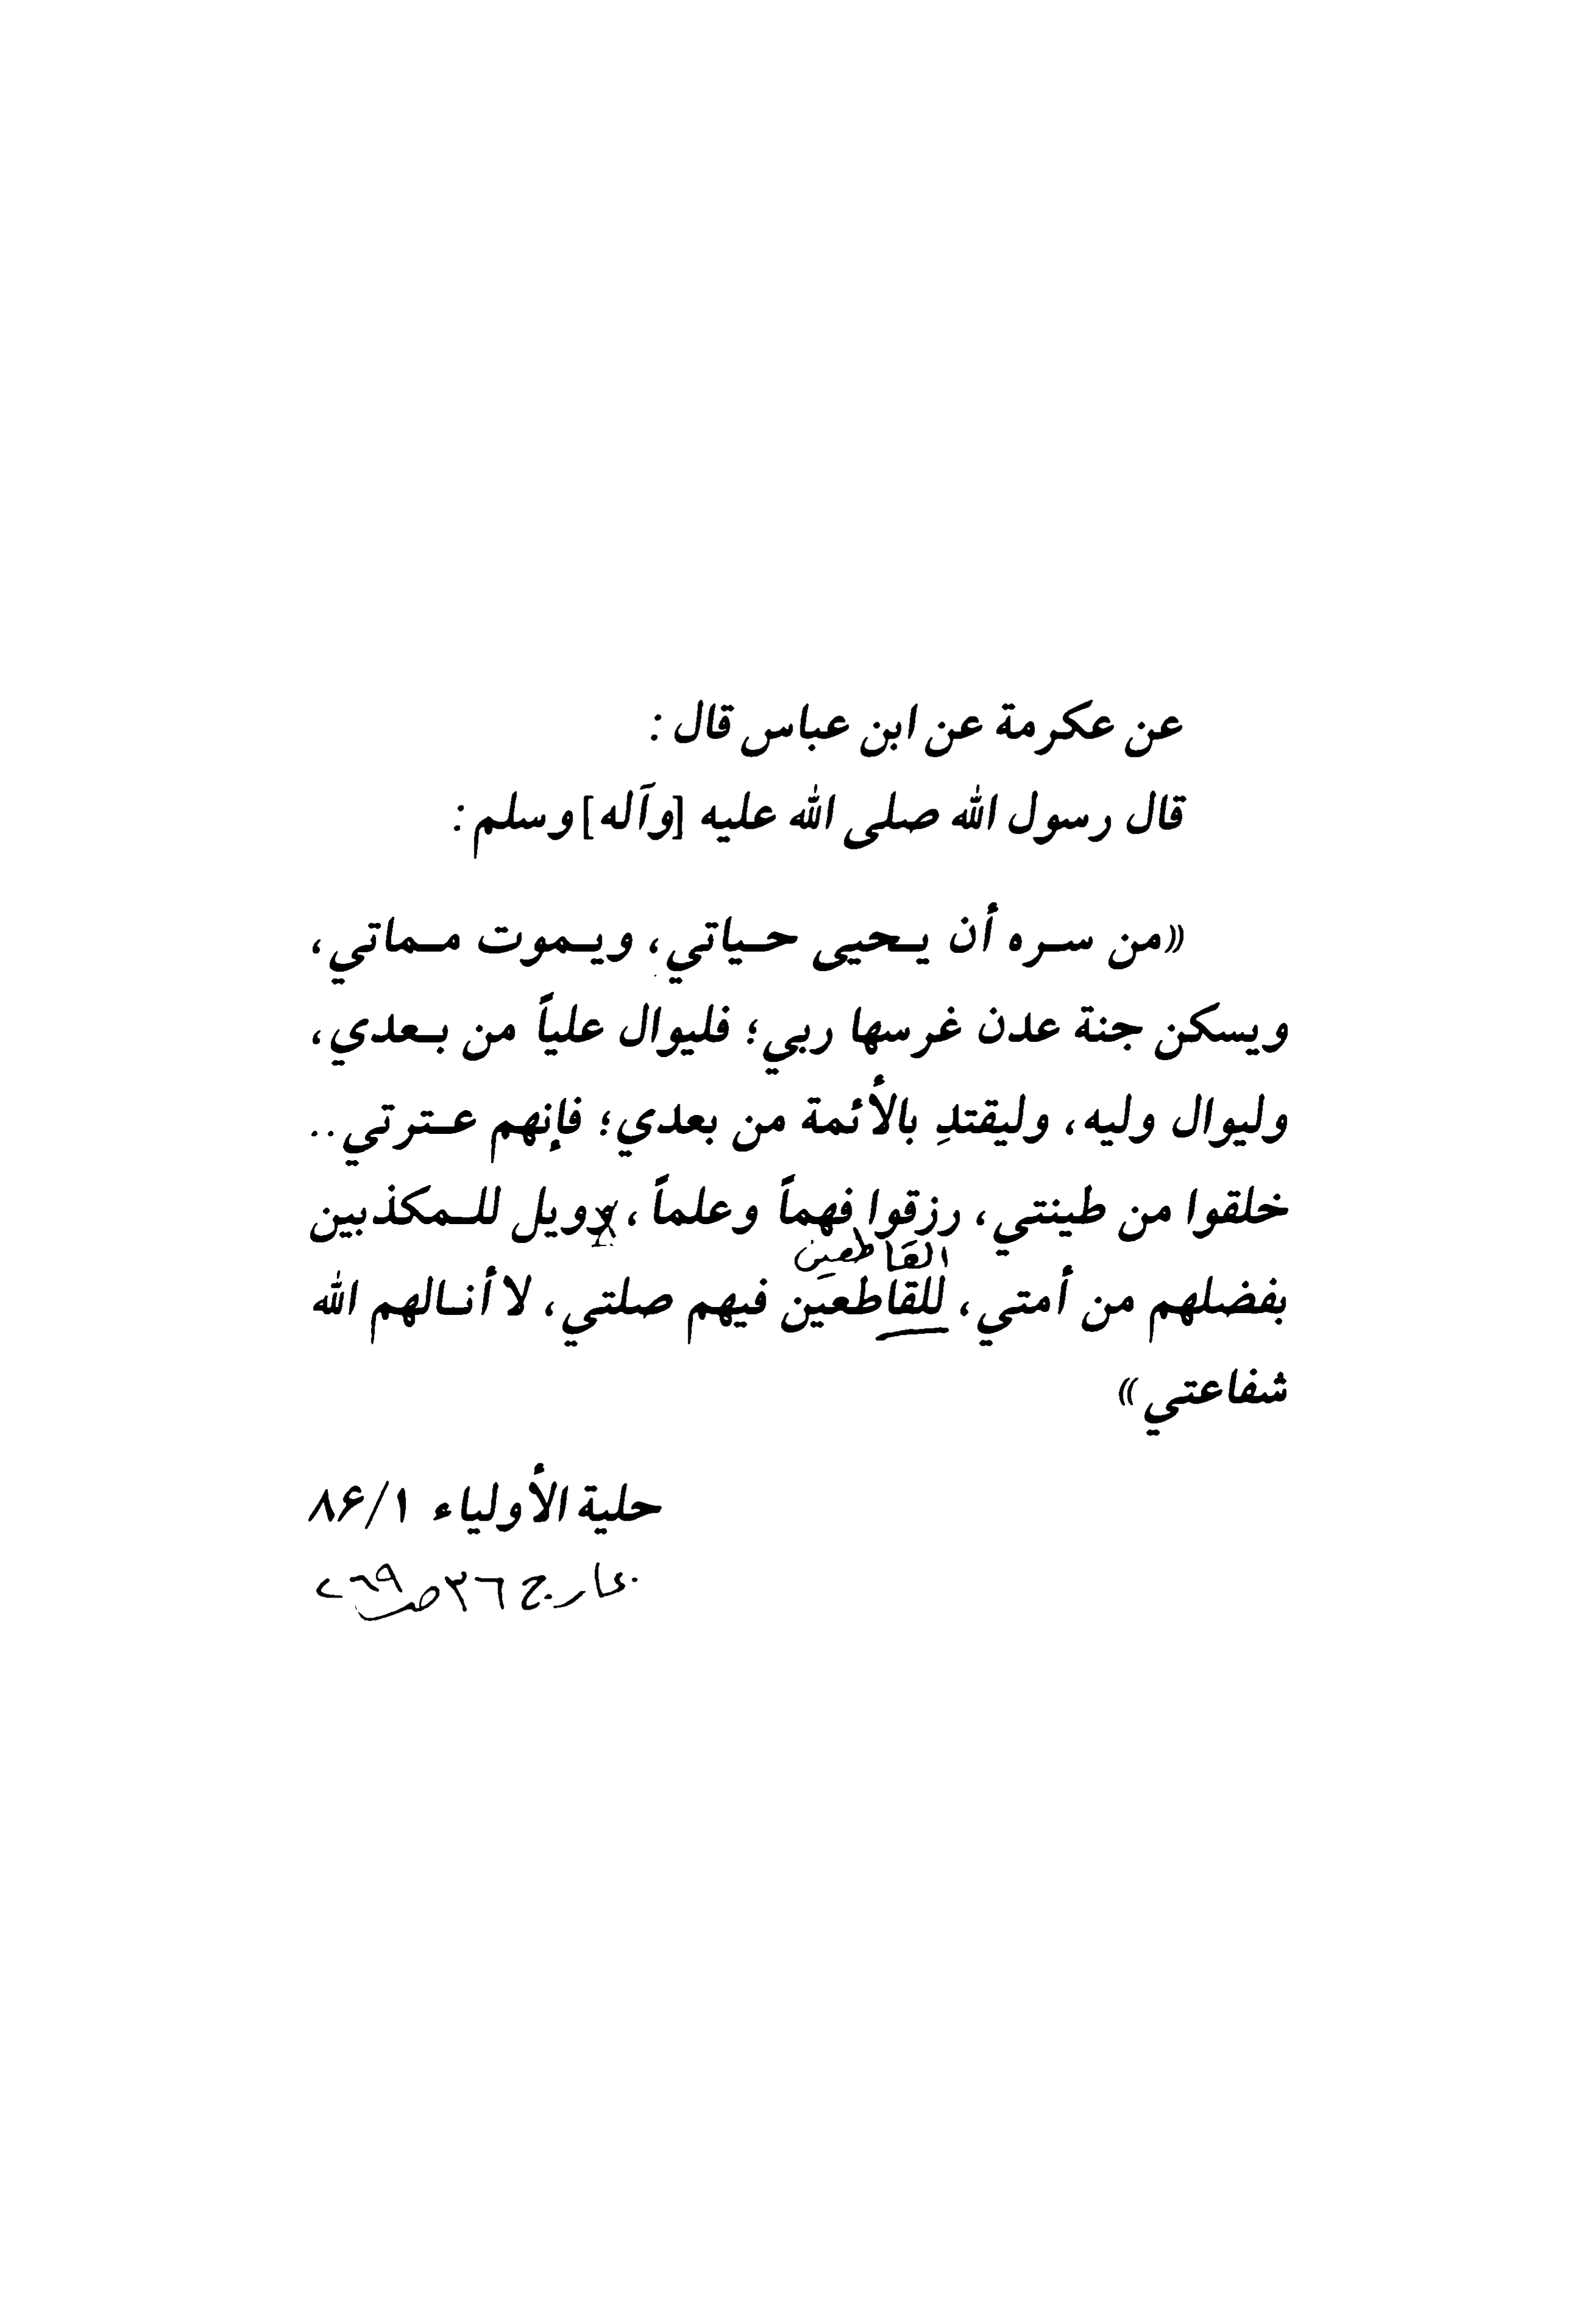 عن عكرمة عن ابن عباس قال :
قال رسول الله صلى الله عليه [وآله] وسلم :
«من سـره أن يـحيى حـياتي، ويـموت مـماتي،
ويسكن جنة عدن غرسها ربي؛ فليوال علياً من بـعدي،
وليوال وليه، وليقتدِ بالأئمة من بعدي؛ فإنهم عـترتي..
خلقوا من طينتي، رزقوا فهماً وعلماً، وويل للـمكذبين
القاطعين
بفضلهم من أمتي، للقاطعين فيهم صلتي، لا أنـالهم الله
شفاعتي»
حلية الأولياء ۱/۸۶
بحار ج ٣٦ ص